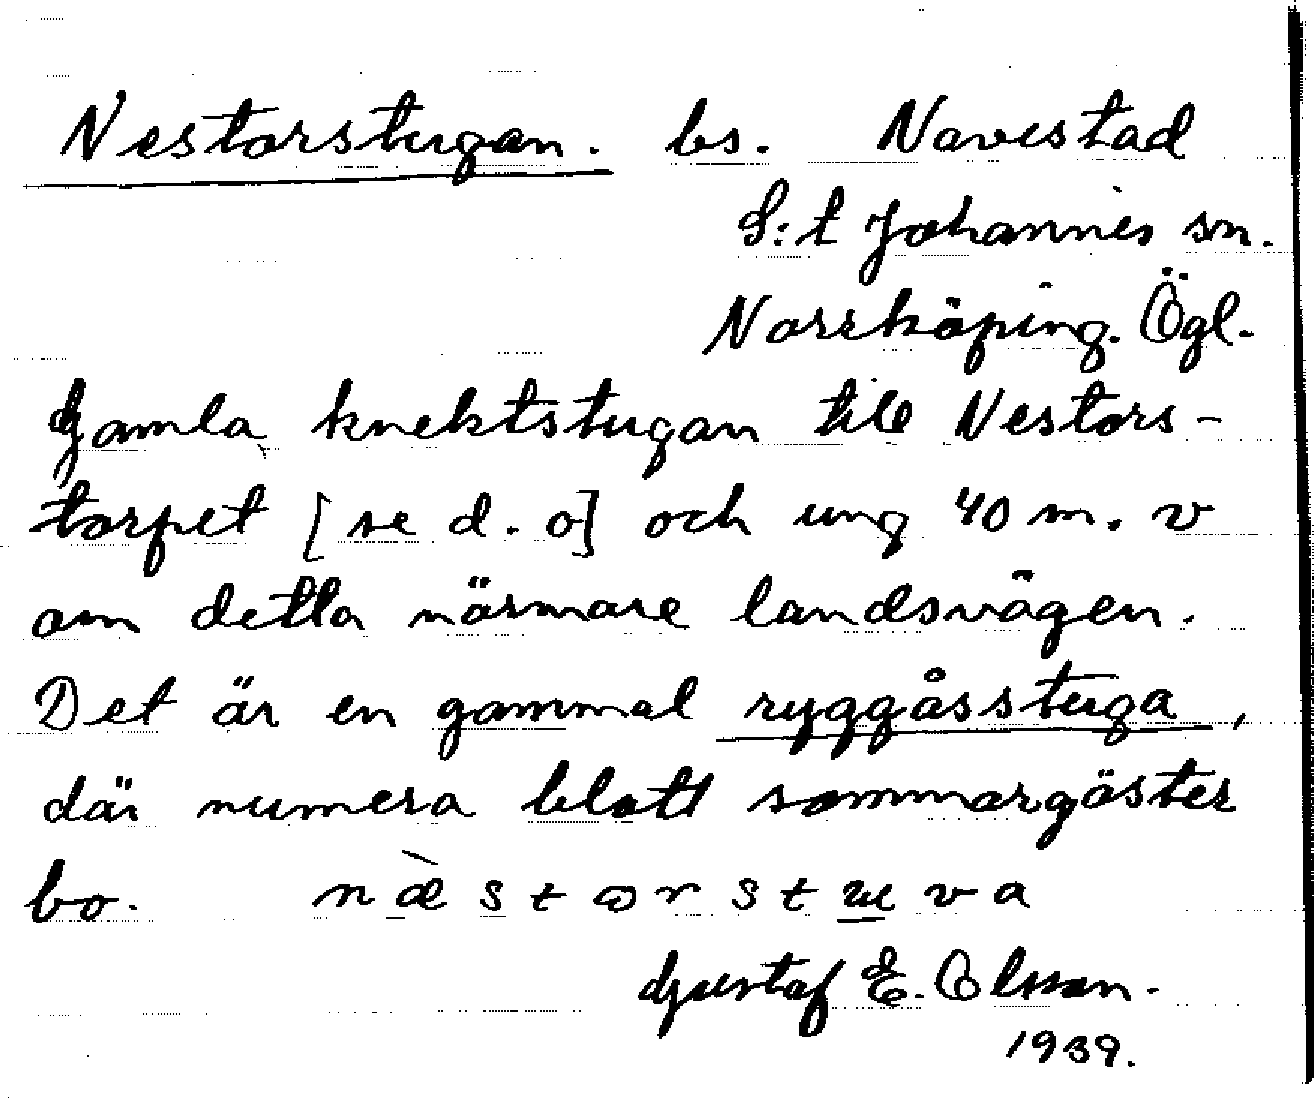 Nestorstugan. bs. Navestad
S:t Johannes sn.
Norrköping. Ögl.
Gamla knektstugan till Nestors-
torpet [se d. o] och ung 40 m. v
om detta närmare landsvägen.
Det är en gammal ryggåsstuga,
där numera blott sommargäster
bo. næ̀stɷrstuva
Gustaf E. Olsson.
1939.